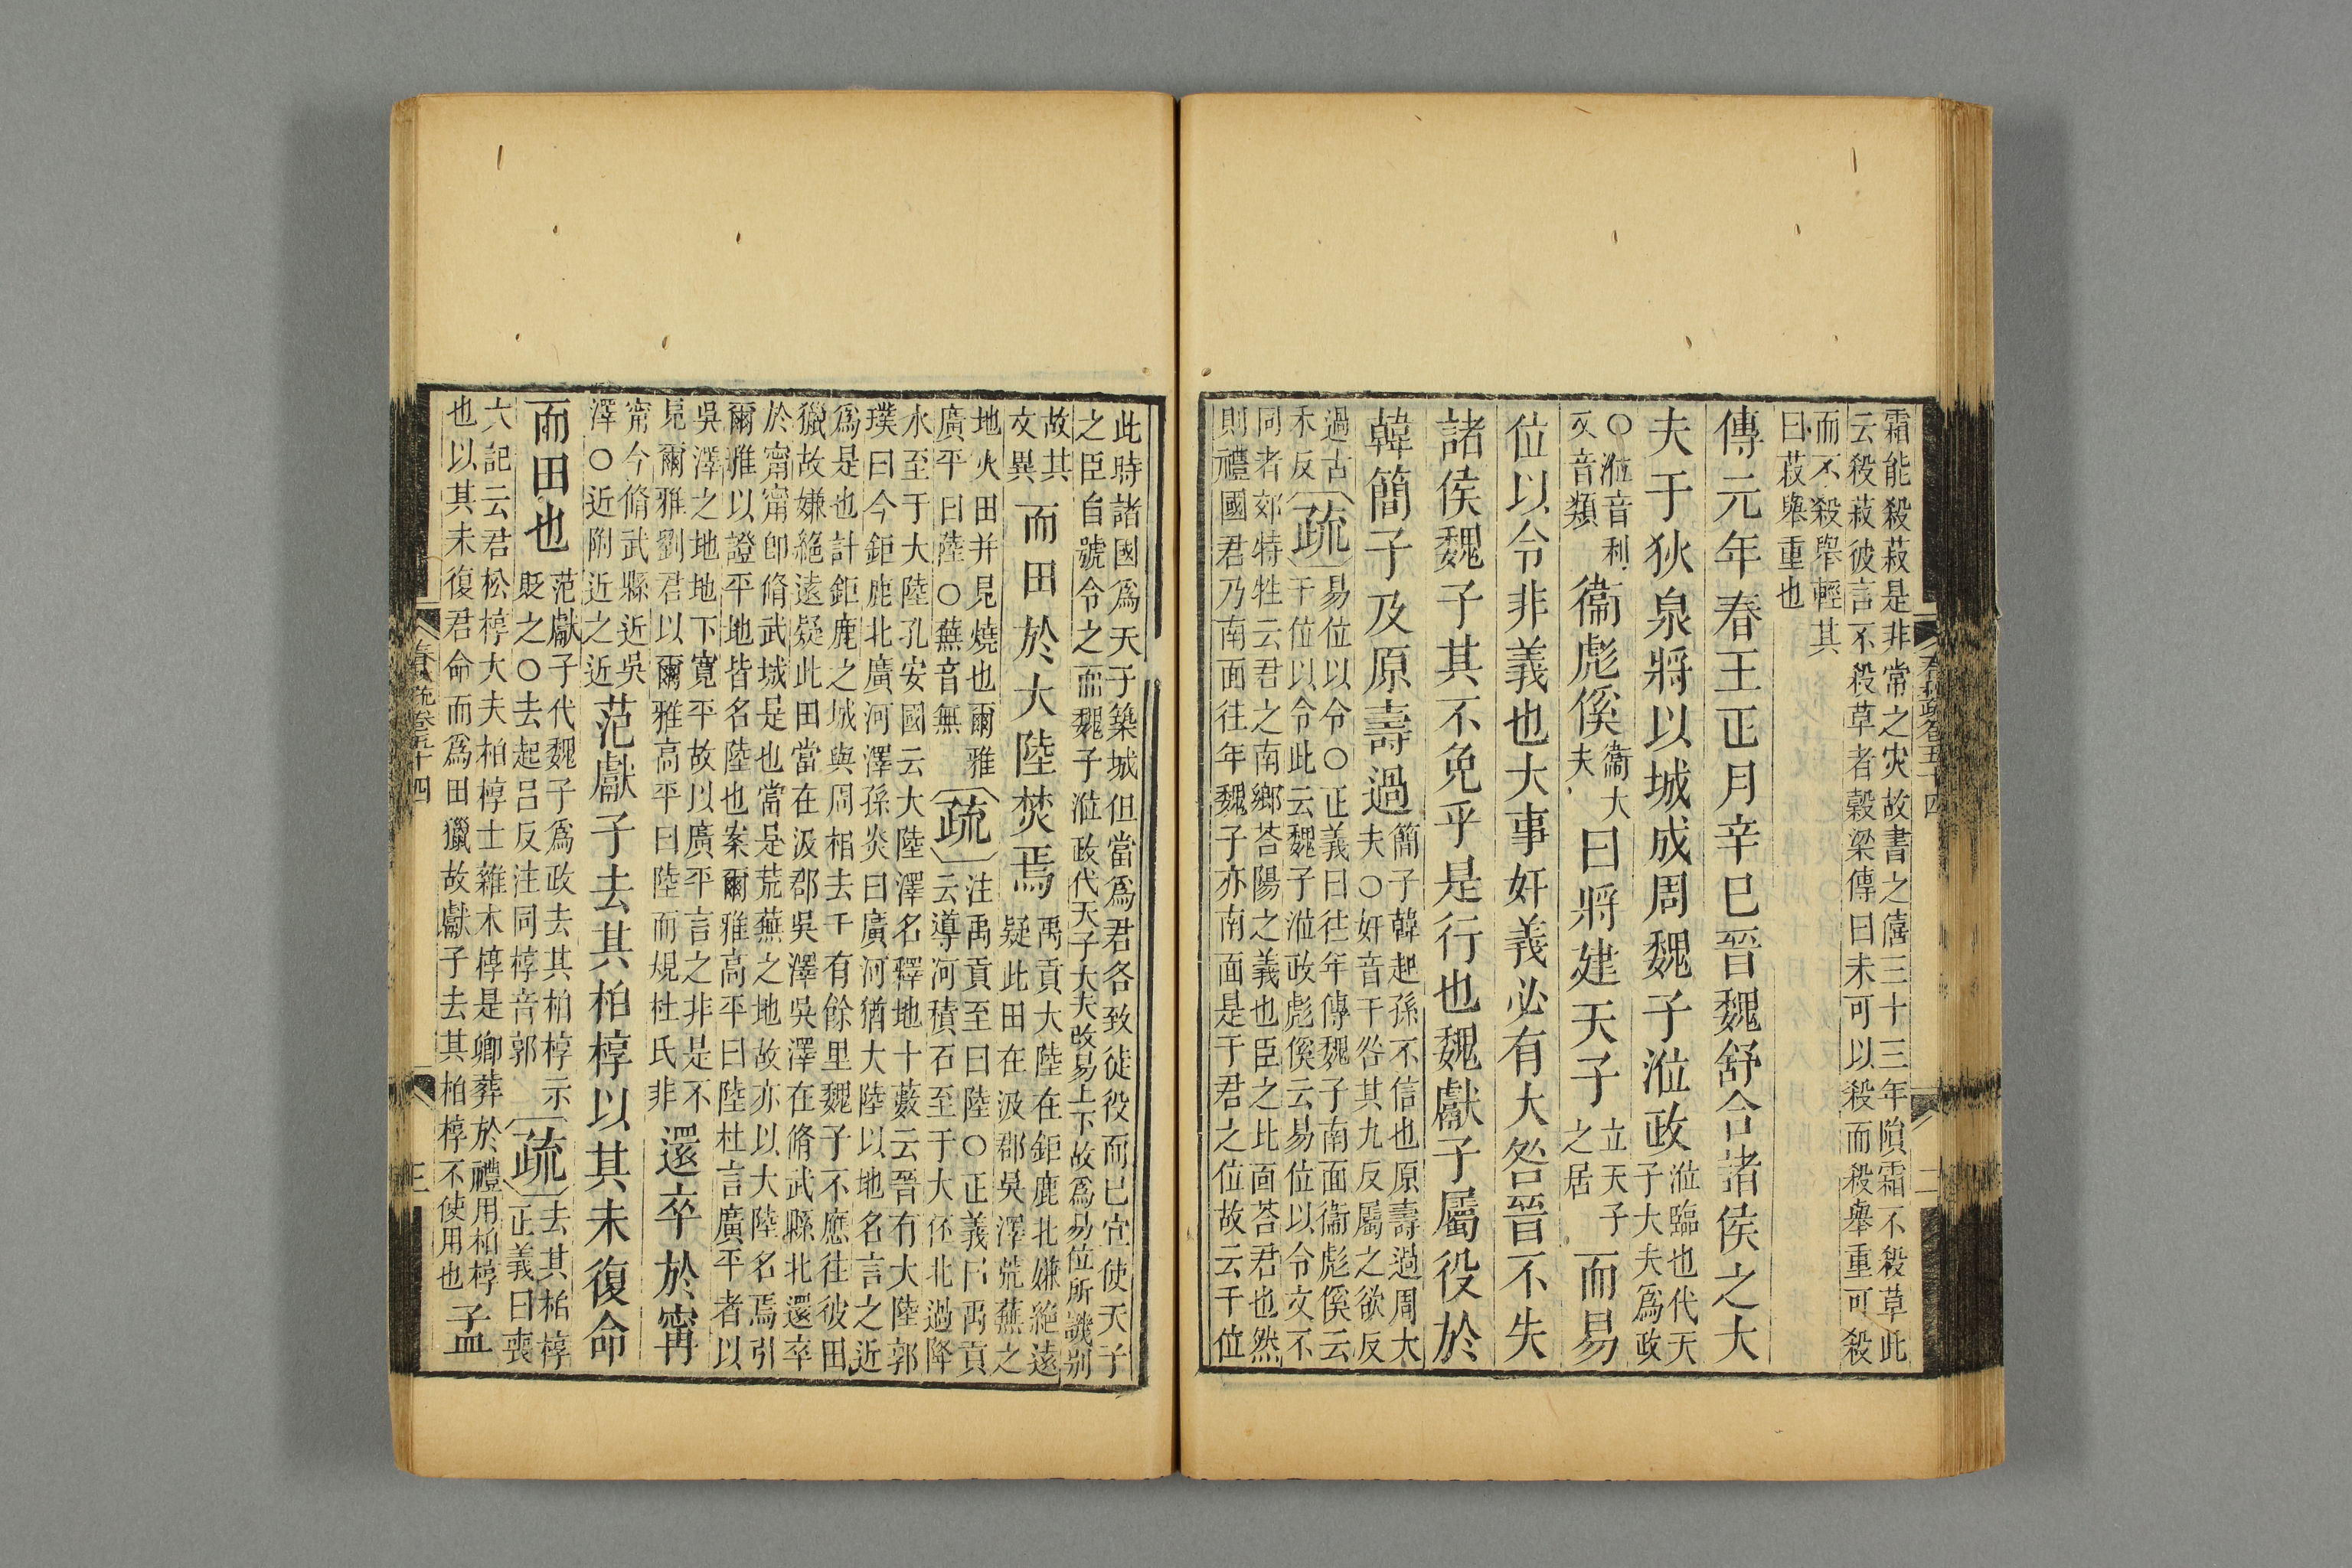 霜能殺菽是非常之灾故書之僖三十三年隕霜不殺草此
云殺菽彼言不殺草者穀梁傳曰未可以殺而殺舉重可殺
而不殺舉輕其
曰菽舉重也
傳元年春王正月辛巳晉魏舒合諸侯之大
夫于狄泉將以城成周魏子涖政
涖臨也代天
子大夫爲政
○涖音利
又音類
衞彪傒
衞大
夫
曰將建天子
立天子
之居
而易
位以令非義也大事奸義必有大咎晉不失
諸侯魏子其不免乎是行也魏獻子屬役於
韓簡子及原壽過
簡子韓起孫不信也原壽過周大
夫○奸音干咎其九反屬之欲反
過古
禾反
疏
易位以令○正義曰往年傳魏子南面衞彪傒云
干位以令此云魏子涖政彪傒云易位以令文不
同者郊特牲云君之南鄉荅陽之義也臣之北面荅君也然
則禮國君乃南面往年魏子亦南面是干君之位故云干位
春秋疏卷五十四
二
此時諸國爲天子築城但當爲君各致徒役而已宜使天子
之臣自號令之而魏子涖政代天子大夫改易上下故爲易位所譏别
故其
文異
而田於大陸焚焉
禹貢大陸在鉅鹿北嫌絶遠
疑此田在汲郡吳澤荒蕪之
地火田并見燒也爾雅
廣平曰陸○蕪音無
疏
注禹貢至曰陸○正義曰禹貢
云導河積石至于大伾北過降
水至于大陸孔安國云大陸澤名釋地十藪云晉有大陸郭
璞曰今鉅鹿北廣河澤孫炎曰廣河猶大陸以地名言之近
爲是也計鉅鹿之城與周相去千有餘里魏子不應往彼田
獵故嫌絶遠疑此田當在汲郡吳澤吳澤在脩武縣北還卒
於甯甯卽脩武城是也當是荒蕪之地故亦以大陸名焉引
爾雅以證平地皆名陸也案爾雅高平曰陸杜言廣平者以
吳澤之地地下寬平故以廣平言之非是不
見爾雅劉君以爾雅高平曰陸而規杜氏非
還卒於甯
甯今脩武縣近吳
澤○近附近之近
范獻子去其柏椁以其未復命
而田也
范獻子代魏子爲政去其柏椁示
貶之○去起呂反注同椁音郭
疏
去其柏椁
正義曰喪
大記云君松椁大夫柏椁士雜木椁是卿葬於禮用柏椁
也以其未復君命而爲田獵故獻子去其柏椁椁不使用也
孟
春秋疏卷五十四
三